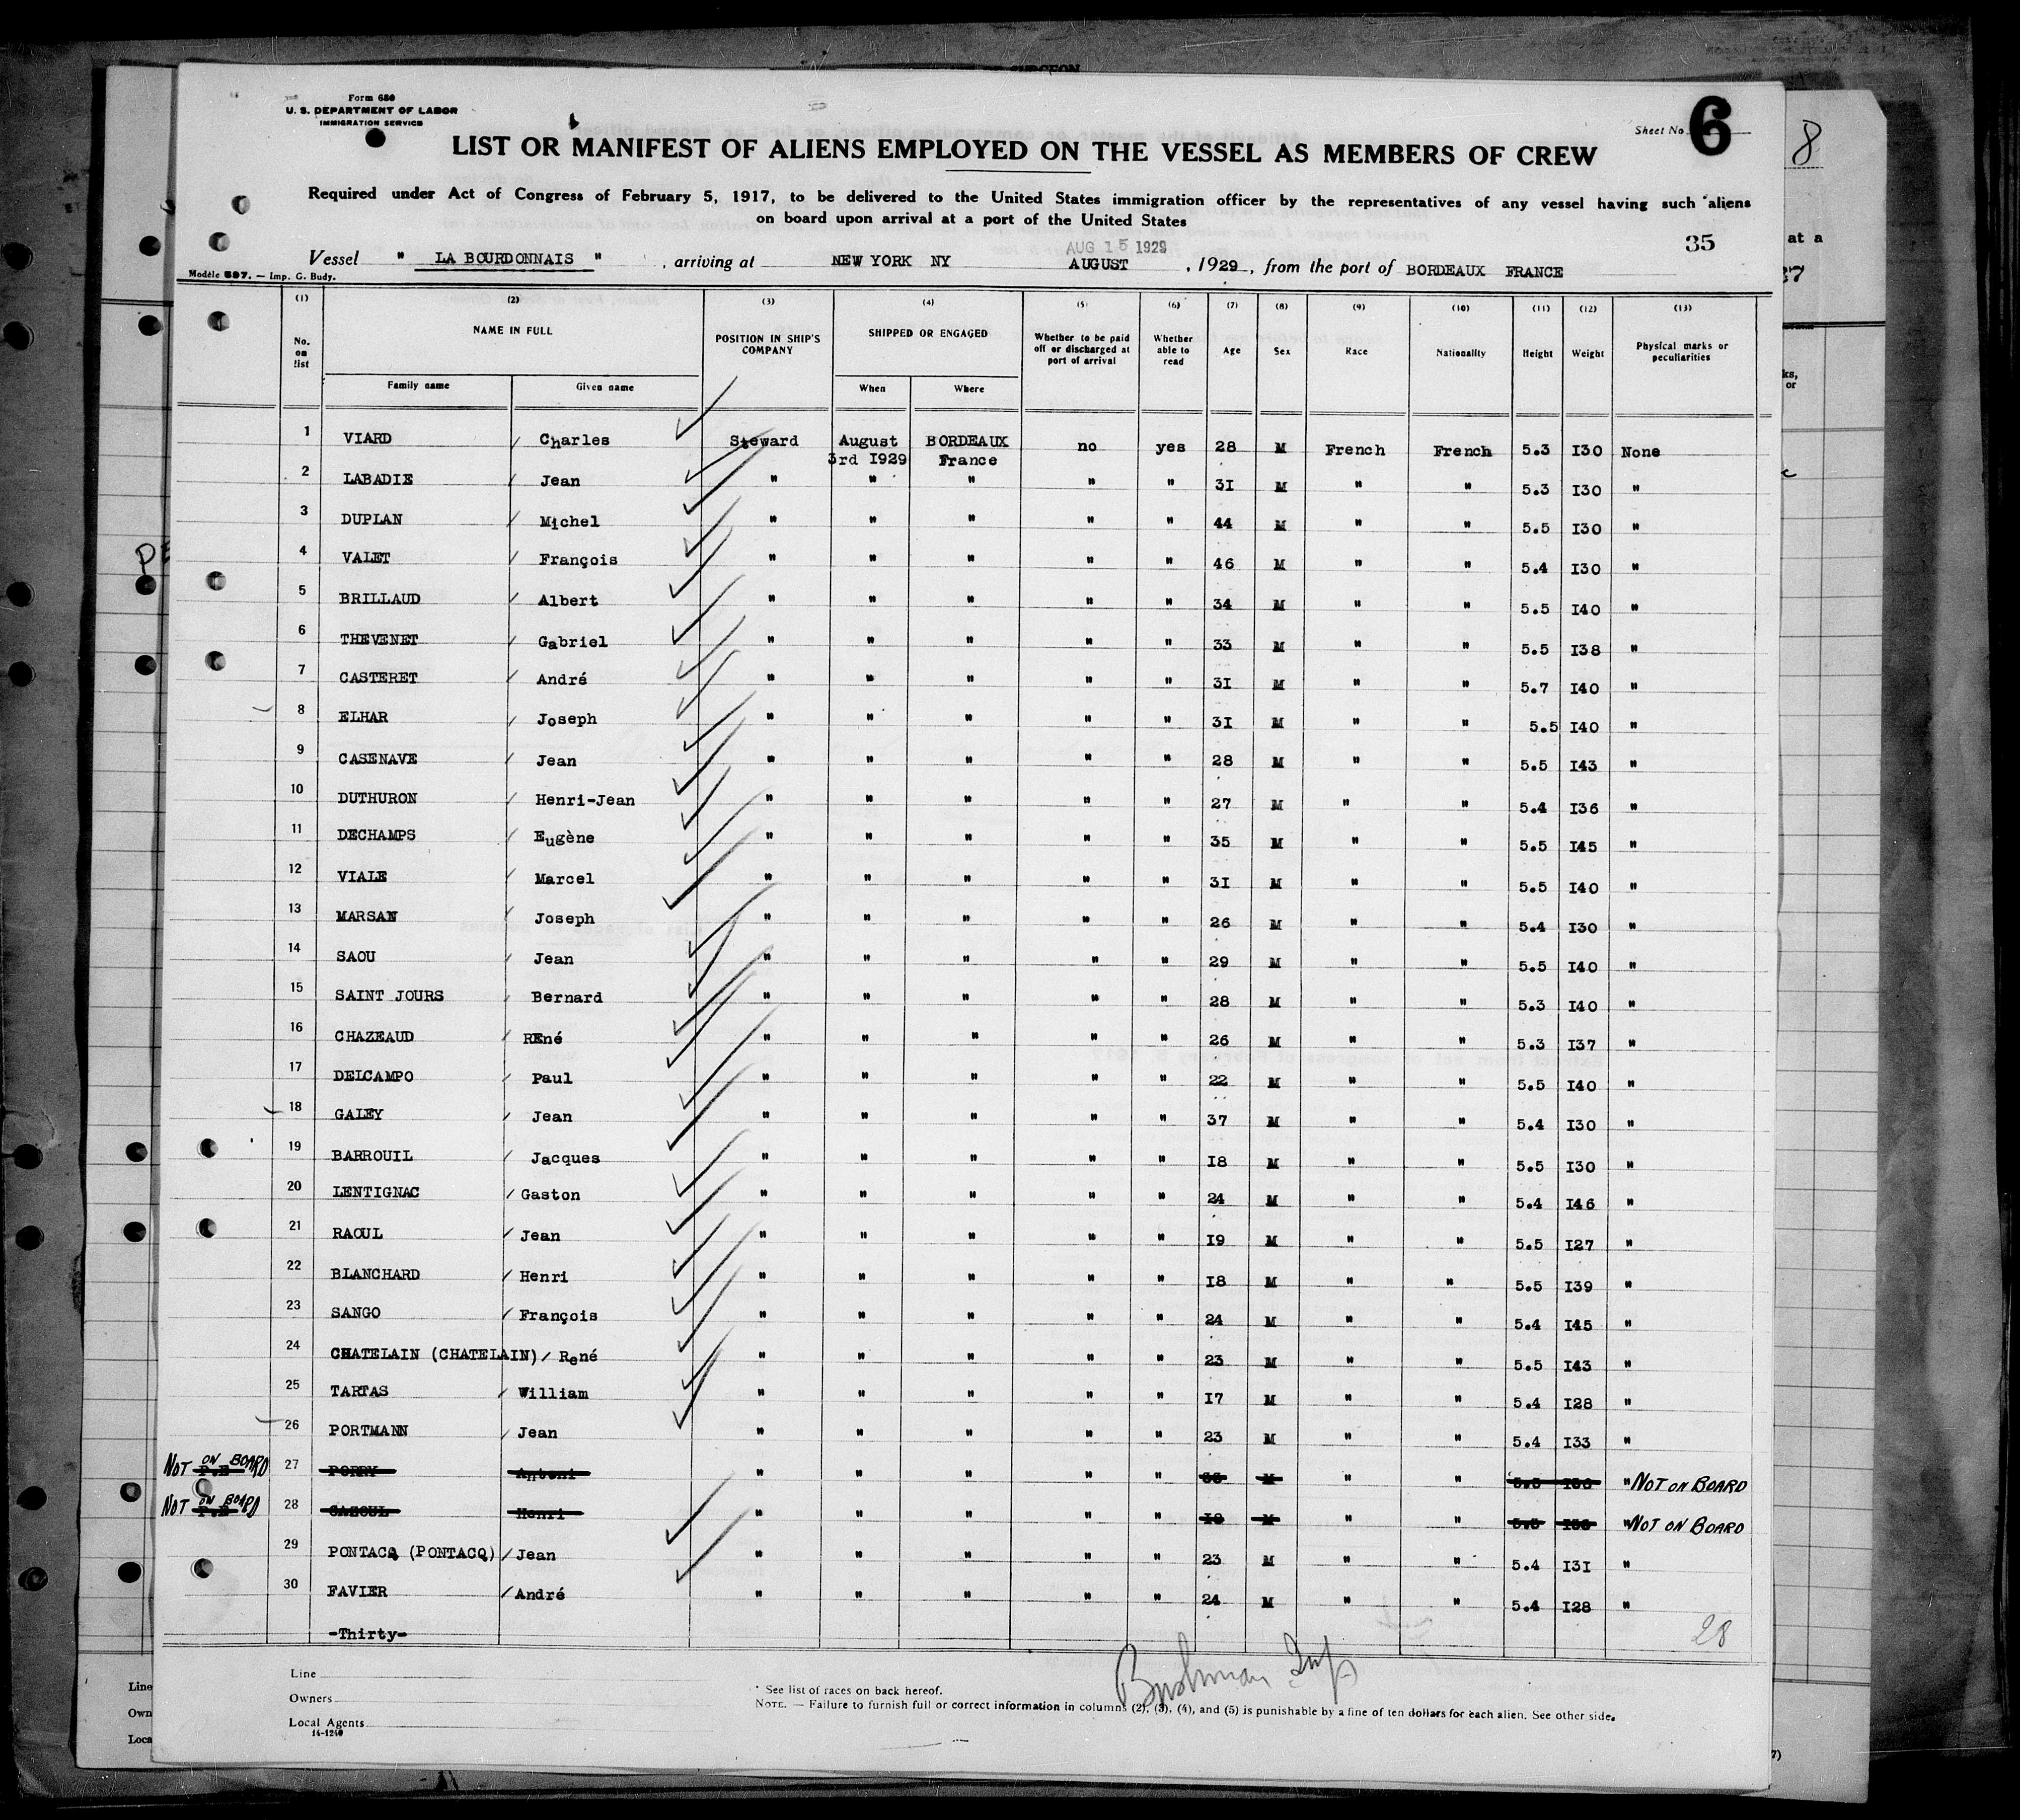 Form 680
U. S. DEPARTMENT OF LABOR
IMMIGRATION SERVICE
Sheet No. 6
8
LIST OR MANIFEST OF ALIENS EMPLOYED ON THE VESSEL AS MEMBERS OF CREW
Required under Act of Congress of February 5, 1917, to be delivered to the United States immigration officer by the representatives of any vessel having such aliens
on board upon arrival at a port of the United States
35
at a
AUG 15 1929
Vessel " LA BOURDONNAIS " , arriving at NEW YORK NY AUGUST , 1929, from the port of BORDEAUX FRANCE
Modèle 597. — Imp. G. Budy.
(1) (2) (3) (4) (5) (6) (7) (8) (9) (10) (11) (12) (13)
No. on list NAME IN FULL POSITION IN SHIP'S COMPANY SHIPPED OR ENGAGED Whether to be paid off or discharged at port of arrival Whether able to read Age Sex Race Nationality Height Weight Physical marks or peculiarities
Family name Given name When Where
1 VIARD / Charles Steward August 3rd 1929 BORDEAUX France no yes 28 M French French 5.3 I30 None
2 LABADIE / Jean " " " " " 3I M " " 5.3 I30 "
3 DUPLAN / Michel " " " " " 44 M " " 5.5 I30 "
4 VALET / François " " " " " 46 M " " 5.4 I30 "
5 BRILLAUD / Albert " " " " " 34 M " " 5.5 I40 "
6 THEVENET / Gabriel " " " " " 33 M " " 5.5 I38 "
7 CASTERET / André " " " " " 3I M " " 5.7 I40 "
8 ELHAR / Joseph " " " " " 3I M " " 5.5 I40 "
9 CASENAVE / Jean " " " " " 28 M " " 5.5 I43 "
10 DUTHURON / Henri-Jean " " " " " 27 M " " 5.4 I36 "
11 DECHAMPS / Eugène " " " " " 35 M " " 5.5 I45 "
12 VIALE / Marcel " " " " " 3I M " " 5.5 I40 "
13 MARSAN / Joseph " " " " " 26 M " " 5.4 I30 "
14 SAOU / Jean " " " " " 29 M " " 5.5 I40 "
15 SAINT JOURS / Bernard " " " " " 28 M " " 5.3 I40 "
16 CHAZEAUD / REné " " " " " 26 M " " 5.3 I37 "
17 DELCAMPO / Paul " " " " " 22 M " " 5.5 I40 "
18 GALEY / Jean " " " " " 37 M " " 5.4 I30 "
19 BARROUIL / Jacques " " " " " I8 M " " 5.5 I30 "
20 LENTIGNAC / Gaston " " " " " 24 M " " 5.4 I46 "
21 RAOUL / Jean " " " " " I9 M " " 5.5 I27 "
22 BLANCHARD / Henri " " " " " I8 M " " 5.5 I39 "
23 SANGO / François " " " " " 24 M " " 5.4 I45 "
24 CHATELAIN (CHATELAIN) / René " " " " " 23 M " " 5.5 I43 "
25 TARTAS / William " " " " " I7 M " " 5.4 I28 "
26 PORTMANN / Jean " " " " " 23 M " " 5.4 I33 "
NOT ON BOARD 27 " " " " " M " " " NOT ON BOARD
NOT ON BOARD 28 Henri " " " " " M " " " NOT ON BOARD
29 PONTACQ (PONTACQ) / Jean " " " " " 23 M " " 5.4 I3I "
30 FAVIER / André " " " " " 24 M " " 5.4 I28 "
-Thirty-
28
Line
Owners
Local Agents
14-1240
* See list of races on back hereof.
NOTE. — Failure to furnish full or correct information in columns (2), (3), (4), and (5) is punishable by a fine of ten dollars for each alien. See other side.
Bushman Insp